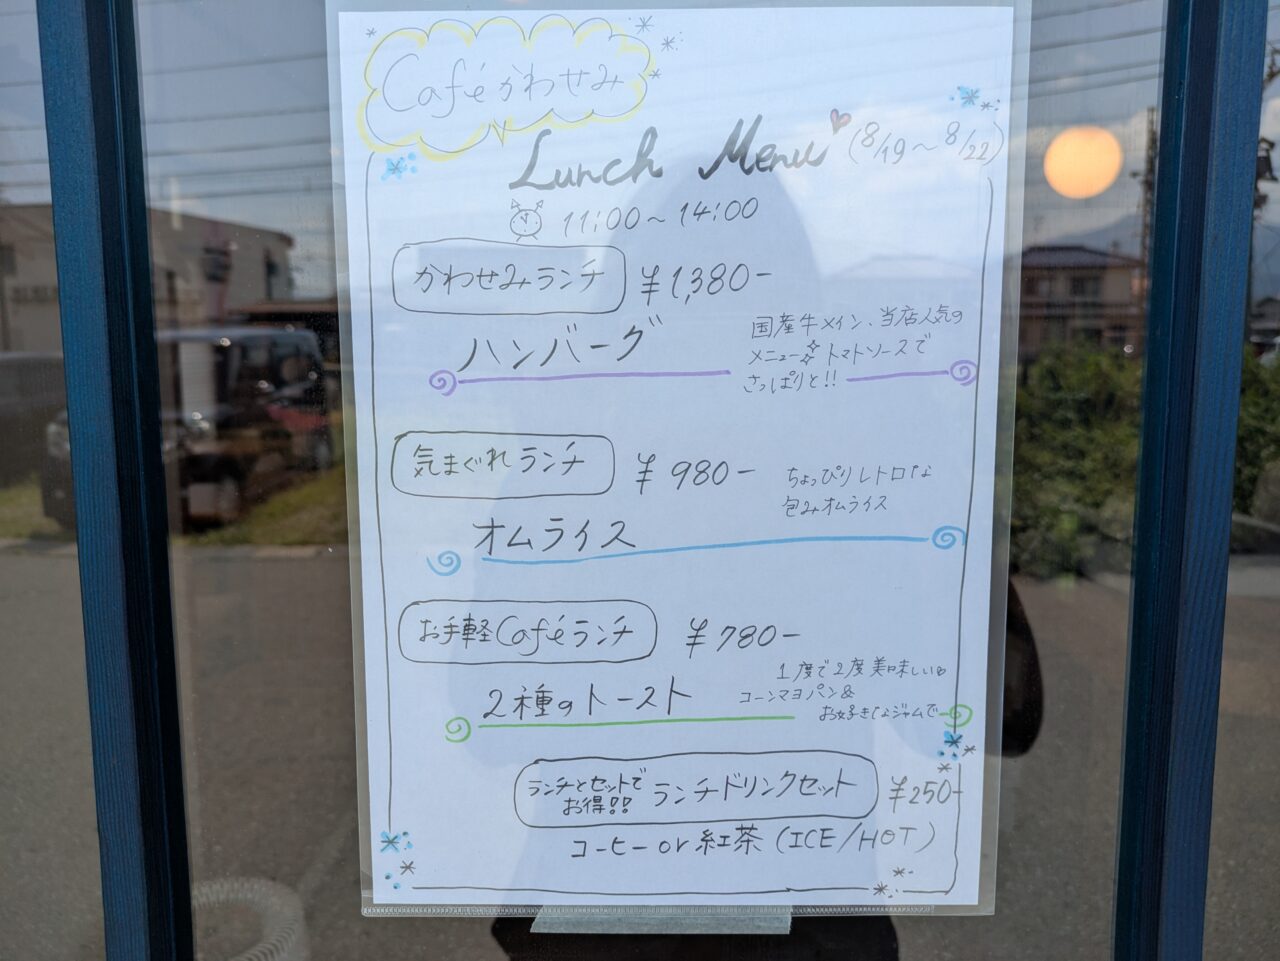 Caféかわせみ
Lunch Menu (8/19～8/22)
11:00～14:00
かわせみランチ ¥1,380-
ハンバーグ
国産牛メイン、当店人気の
メニュー トマトソースで
さっぱりと!!
気まぐれランチ ¥980-
オムライス
ちょっぴりレトロな
包みオムライス
お手軽Caféランチ ¥780-
2種のトースト
1度で2度美味しい
コーンマヨパン&
お好きなジャムで
ランチとセットで
お得!! ランチドリンクセット ¥250-
コーヒーor紅茶(ICE/HOT)